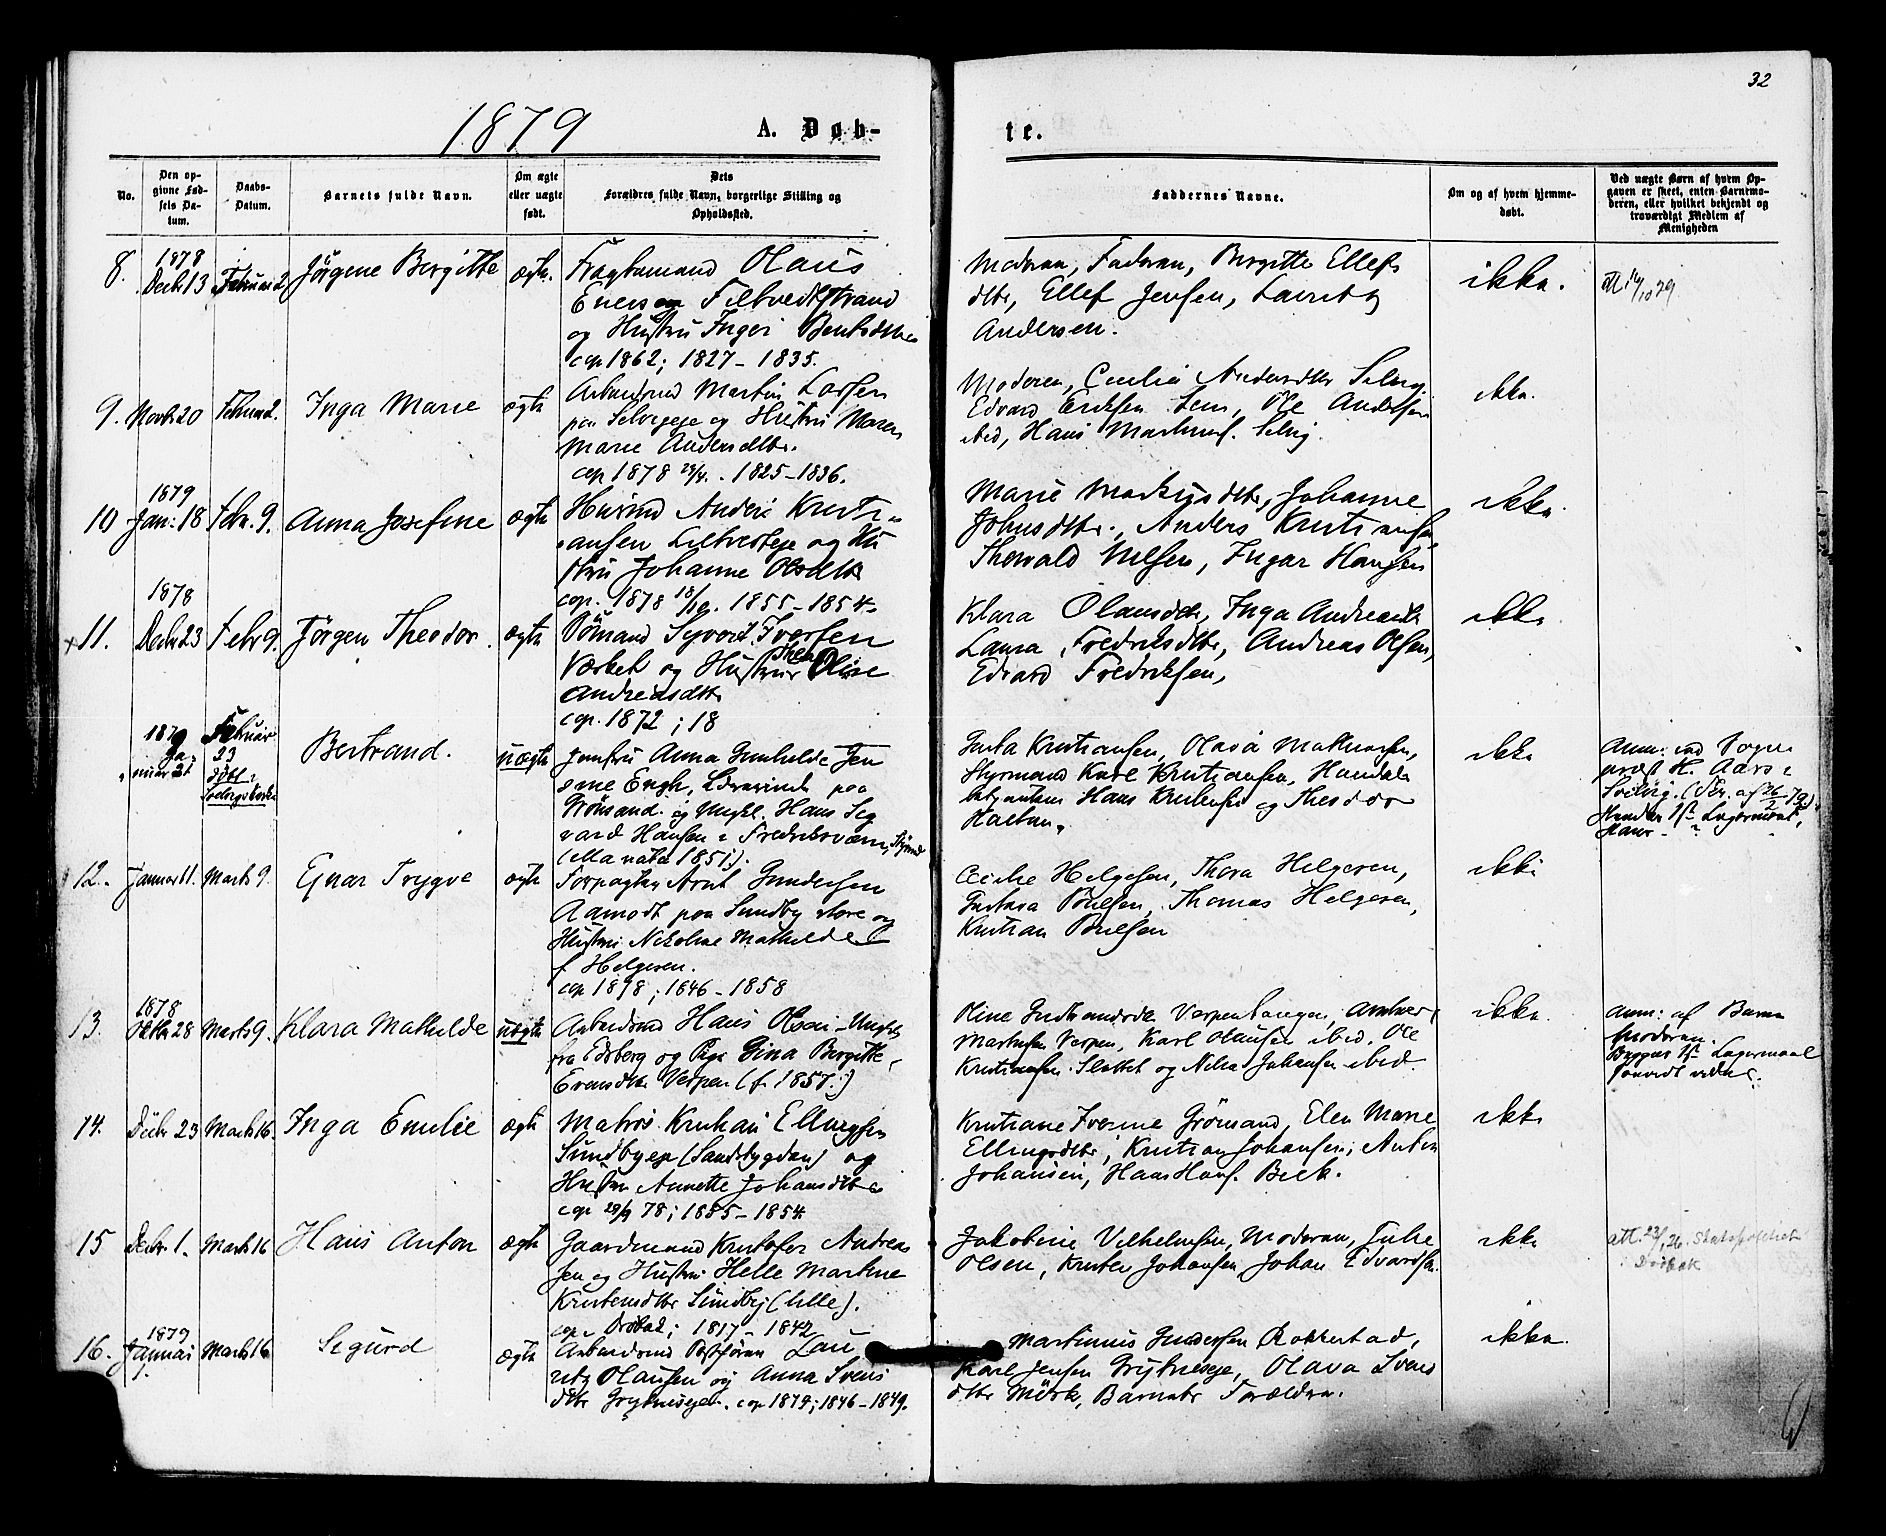 32
1879 A. Døb-
te.
No.
Den op-
givne Fød-
sels Da-
tum.
Daabs-
Datum.
Barnets fulde Navn.
Om ægte
eller uægte
født.
Dets
Forældres fulde Navn, borgerlige Stilling og
Opholdssted.
Faddernes Navne.
Om og af hvem hjemme-
døbt.
Ved uægte Børn af hvem Op-
gaven er skeet, enten Barnemo-
deren, eller hvilket bekjendt og
troværdigt Medlem af
Menigheden
8.
1878
Decbr 13
Februar 2
Jørgine Bergitte
ægte.
Fragtemand Olaus
Enersen Filtvedtstrand
og Hustru Inger Bentsdtter
cop 1862; 1827 - 1835.
Moderen, Faderen, Birgitte Ellefs
dtr, Ellef Jensen, Lauritz
Andersen.
ikke.
att 16/10 79
9.
Novbr 20
Februar 2.
Inga Marie
ægte
Arbeidsmd Martin Larsen
paa Selvigeje og Hustru Maren
Marie Andersdtter.
cop 1878 29/4. 1825 - 1836.
Moderen, Cecilie Andersdtr Selvig,
Edvard Eriksen Sem, Ole Andersen
ibid, Hans Martins. Selvig.
ikke.
10
1879
Jan: 18
Febr. 9.
Anna Josefine
ægte
Anders Kristi-
ansen og Hu
stru Johanne Olsdtr
cop. 1878 18/10. 1855 - 1854.
Marie Markusdtr, Johanne
Johnsdtr., Anders Kristiansen,
Thorvald Nilsen, Ingar Hansen
ikke.
11.
1878
Decbr 23
Febr 9.
Jørgen Theodor.
ægte
Sømand Syvert Iversen
Værket og Hustru Thea Oline
Andreasdtr
cop. 1872; 18
Klara Olausdtr, Inga Andreasdtr
Laura Fredriksdtr, Andreas Olsen,
Edvard Fredriksen,
ikke
1879
Ja-
nuar 21
Februar
23
døbt i
Bertrand.
uægte
Jomfru Anna Gunhilde Jen
sine Engh, Lærerinde paa
Grønsand. og Ungk. Hans Sig
vard Hansen i Fredriksværn, Styrmd
(Ma nata 1851).
Kristiansen, Olava Mathiesen,
Styrmand Karl Kristiansen, Handels
betjenten Hans Kristensen og Theodor
Holtan.
ikke
Anm: ved Sogne
præst H. Aars i
Solbirg. (Skr. af 26/2 79).
12.
Januar 11.
Marts 9.
Ejnar Trygve
ægte
Forpagter Arnt Gundersen
Aamodt paa Sundby store og
Hustru Nikoline Mathilde
f. Helgesen.
cop 1878; 1846 - 1858
Cecilie Helgesen, Thora Helgesen,
Gustava Poulsen, Thomas Helgesen,
Kristian Poulsen
ikke
13.
1878
Oktbr 28
Marts 9.
Klara Mathilde
uægte
Arbeidsmd Hans Olsen - Ungk.
fra Edsberg og Pige Gina Birgitte
Evensdtr Verpen (f. 1857.)
Oline Gulbrandsdtr Verpentangen,
Martinsen Verpen, Karl Olausen ibid, Ole
Kristiansen Slottet og Nils Johansen ibid.
ikke.
Anm: af Barne
moderen.
Begges 1ste Lejermaal
saavidt vides.
14.
Decbr 23
Marts 16.
Inga Emilie
ægte
Matros Kristian Ellingsen
Sundbyeje (Sandbygden) og
Hustru Annette Johansdtter
cop 29/9 78; 1855 - 1854.
Kristiane Iversine Grønsand, Elen Marie
Ellingsdtr, Kristian Johansen, Anton
Johansen, Hans Hans. Bæk.
ikke
15
Decbr. 1.
Marts 16
Hans Anton
ægte
Gaardmand Kristofer Andrea
sen og Hustru Helle Martine
Kristensdtr Sundby (lille).
cop. Drøbak; 1817 - 1842
Jakobine Vilhelmsen, Moderen, Julie
Olsen, Kristen Johansen, Johan Edvardsen.
ikke
att. 23/1 26.
Drøbak
16.
1879
Januar
9.
Marts 16
Sigurd
ægte
Lau
ritz Olausen og Anna Svens
dtr . cop 1874; 1846 - 1849.
Martinius Gundersen Rokkestad,
Karl Jensen, Olava Svens
dtr Mørk, Barnets Forældre.
ikke.